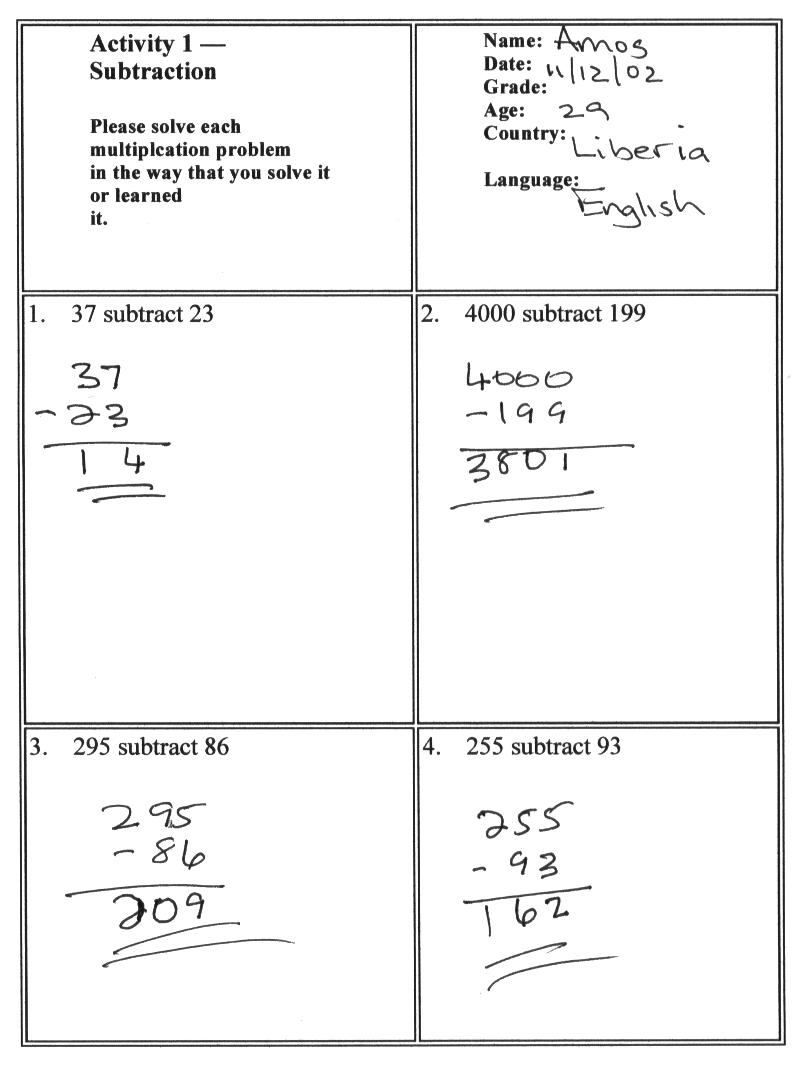 Activity 1 —
Subtraction
Please solve each
multiplcation problem
in the way that you solve it
or learned
it.
Name: Amos
Date: 11/12/02
Grade:
Age: 29
Country: Liberia
Language: English
1. 37 subtract 23
37
- 23
14
2. 4000 subtract 199
4000
- 199
3801
3. 295 subtract 86
295
- 86
209
4. 255 subtract 93
255
- 93
162